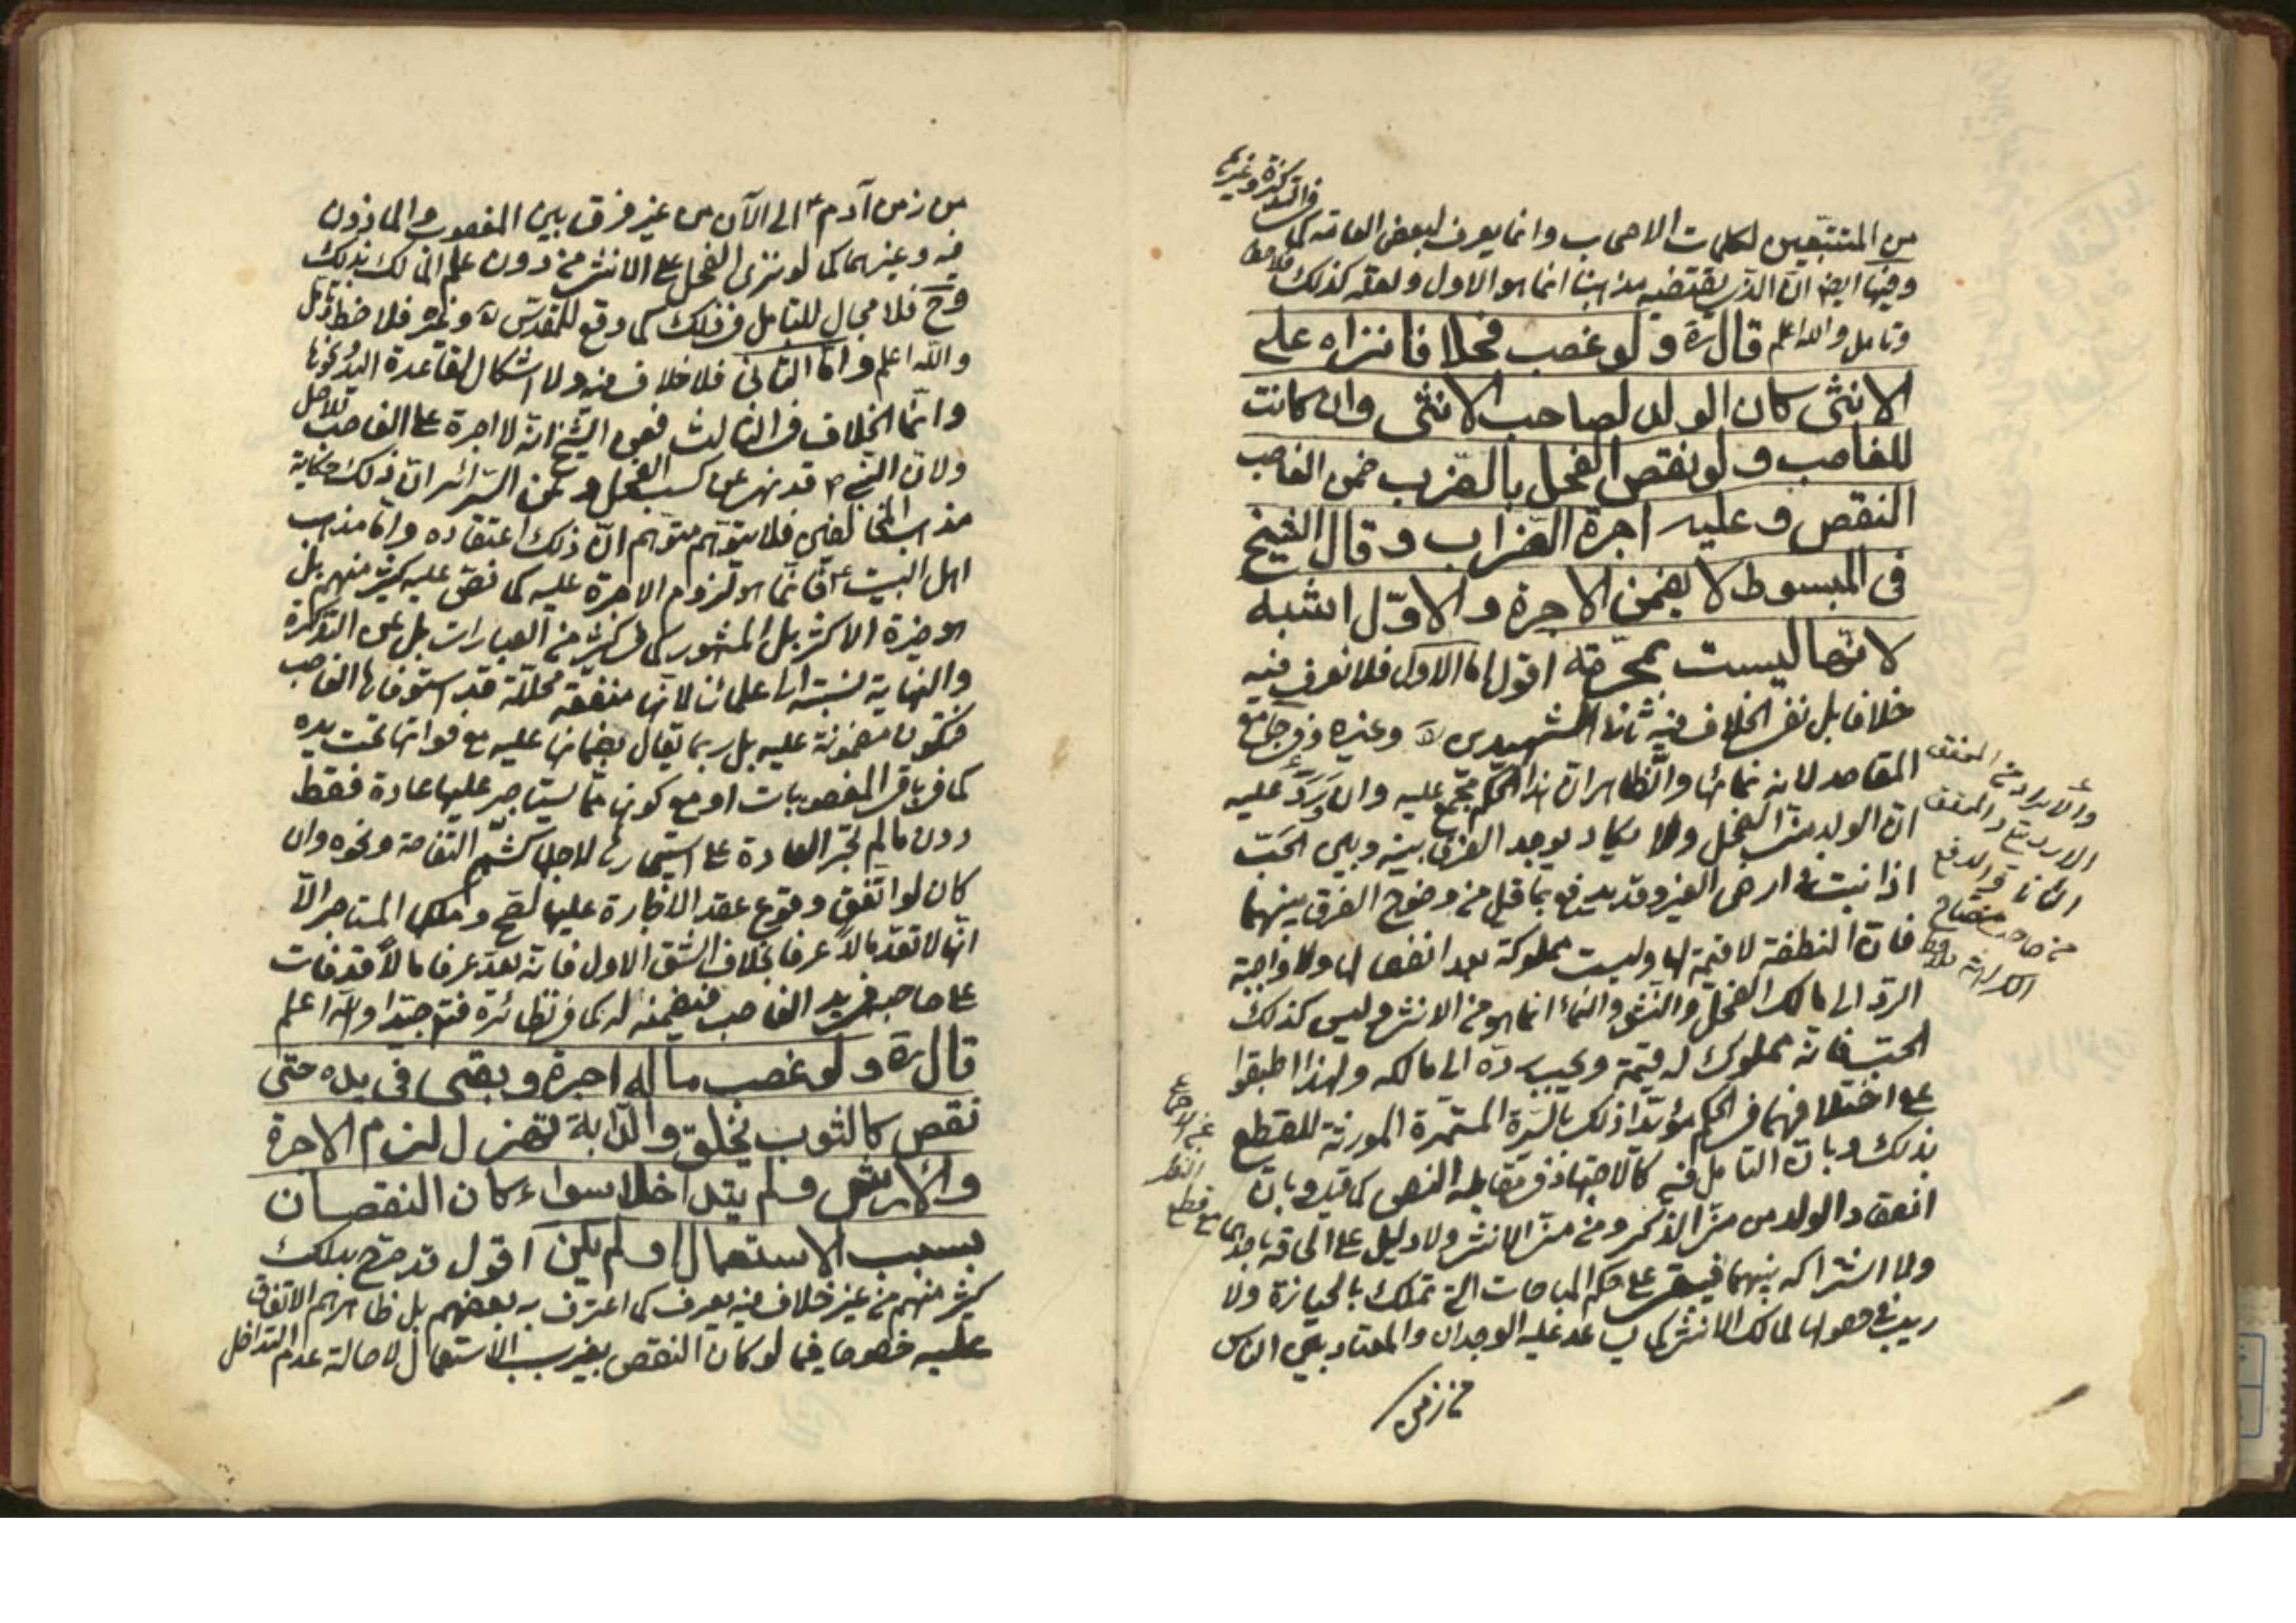 من المتتبعين لكلمات الاصحاب وانما يعرف لبعض العامة كما
في التذكرة وغيرها
وفيها ايضا ان الذي يقتضيه مذهبنا انما هو الاول ولعله كذلك
وتامل والله اعلم قال ره ولو غصب فحلا فانزاه على
الانثى كان الولد لصاحب الانثى وان كانت
للغاصب ولو نقص الفحل بالضراب ضمن الغاصب
النقص وعليه اجرة الضراب وقال الشيخ
فى المبسوط لا يضمن الاجرة والاوّل اشبه
لانّها ليست بمحرّمة اقول اما الاول فلا نعرف فيه
خلافا بل نفى الخلاف فيه ثاني الشهيدين ره وغيره وفي جامع
المقاصد لانه نمائها والظاهر ان هذا الحكم مجمع عليه وان ورد عليه
ان الولد من الفحل ولا يكاد يوجد الفرق بينه وبين الحب
اذا نبت في ارض الغير وقد يدفع بما قيل من وضوح الفرق بينهما
فان النطفة لا قيمة لها وليست مملوكة بعد انفصالها ولا واجبة
الرد الى مالك الفحل والنشو والنماء انما هو من الانثى وليس كذلك
الحب فانه مملوك له قيمة ويجب رده الى مالكه ولهذا اطبقوا
على اختلافهما في الحكم مؤيدا ذلك بالسيرة المستمرة المورثة للقطع
بذلك وبان التامل فيه كالاجتهاد في مقابلة النص كما قيل وبان
انعقاد الولد من منى الذكر ومن منى الانثى ولا دليل على الحاقه باحدهما
ولا اشتراكه بينهما فيبقى على حكم المباحات التي تملك بالحيازة ولا
ريب في حصولها لمالك الانثى كما يساعد عليه الوجدان والمعتاد بين الناس
من زمن
والايراد من المحقق
الاردبيلي
والدفع
من صاحب مفتاح
الكرامة
من زمن آدم ع الى الآن من غير فرق بين المغصوب والماذون
فيه وغيرهما كما لو نزى الفحل على الانثى من دون علم المالك بذلك
وح فلا مجال للتامل في ذلك كما وقع للمقدس ره وغيره فلاحظ وتامل
والله اعلم واما الثاني فلا خلاف فيه ولا اشكال لقاعدة اليد ونحوها
وانّما الخلاف في الثالث فعن الشيخ انه لا اجرة على الغاصب للاصل
ولان النبي ص قد نهى عن كسب الفحل وعن السرائر ان ذلك حكاية
مذهب المخالفين فلا يتوهم متوهم ان ذلك اعتقاده واما مذهب
اهل البيت ع فانما هو لزوم الاجرة عليه كما نص عليه كثير منهم بل
هو خيرة الاكثر بل المشهور كما في كثير من العبارات بل عن التذكرة
والنهاية نسبته الى علمائنا لانها منفعة محللة قد استوفاها الغاصب
فتكون مضمونة عليه بل ربما يقال بضمانها عليه مع فواتها تحت يده
كما في باقي المغصوبات او مع كونها مما يستاجر عليها عادة فقط
دون ما لم تجر العادة على استيجارها لاجلها كشم التفاحة ونحوه وان
كان لو اتفق وقوع عقد الاجارة عليها لصح وملكها المستاجر الا
انها لا تعد مالا عرفا بخلاف الشق الاول فانه يعد عرفا مالا قد فات
على صاحبه في يد الغاصب فيضمنه له كما في نظائره فتم جيدا والله اعلم
قال ره ولو غصب ماله اجرة وبقى فى يده حتى
نقص كالثوب يخلق والدّابة تهزل لزم الاجرة
والارش ولم يتداخلا سواء كان النقصان
بسبب الاستعمال او لم يكن اقول قد صرح بذلك
كثير منهم من غير خلاف فيه يعرف كما اعترف به بعضهم بل ظاهرهم الاتفاق
عليه خصوصا فيما لو كان النقص بغير سبب الاستعمال لاصالة عدم التداخل